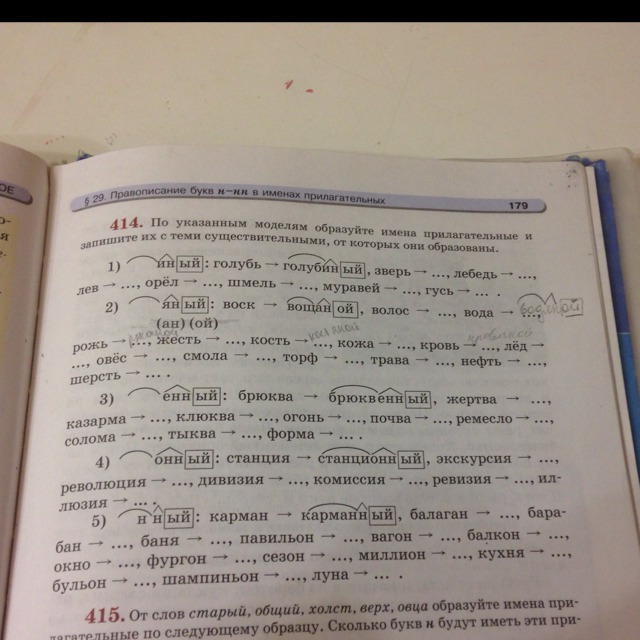 ОЕ
§ 29. Правописание букв н–нн в именах прилагательных 179
414. По указанным моделям образуйте имена прилагательные и
запишите их с теми существительными, от которых они образованы.
1) иный: голубь → голубиный, зверь → ..., лебедь → ...,
лев → ..., орёл → ..., шмель → ..., муравей → ..., гусь → ... .
2) яный: воск → вощаной, волос → ..., вода → ..., водяной
(ан) (ой)
рожь → ..., жесть → ..., кость → ..., кожа → ..., кровь → ..., лёд →
..., овёс → ..., смола → ..., торф → ..., трава → ..., нефть → ...,
шерсть → ... .
3) енный: брюква → брюквенный, жертва → ...,
казарма → ..., клюква → ..., огонь → ..., почва → ..., ремесло → ...,
солома → ..., тыква → ..., форма → ... .
4) онный: станция → станционный, экскурсия → ...,
революция → ..., дивизия → ..., комиссия → ..., ревизия → ..., ил-
люзия → ... .
5) нный: карман → карманный, балаган → ..., бара-
бан → ..., баня → ..., павильон → ..., вагон → ..., балкон → ...,
окно → ..., фургон → ..., сезон → ..., миллион → ..., кухня → ...,
бульон → ..., шампиньон → ..., луна → ... .
415. От слов старый, общий, холст, верх, овца образуйте имена при-
лагательные по следующему образцу. Сколько букв н будут иметь эти при-